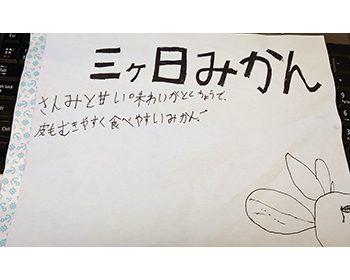 三ヶ日みかん
さんみと甘い味わいがとくちょうで、
皮もむきやすく食べやすいみかん!